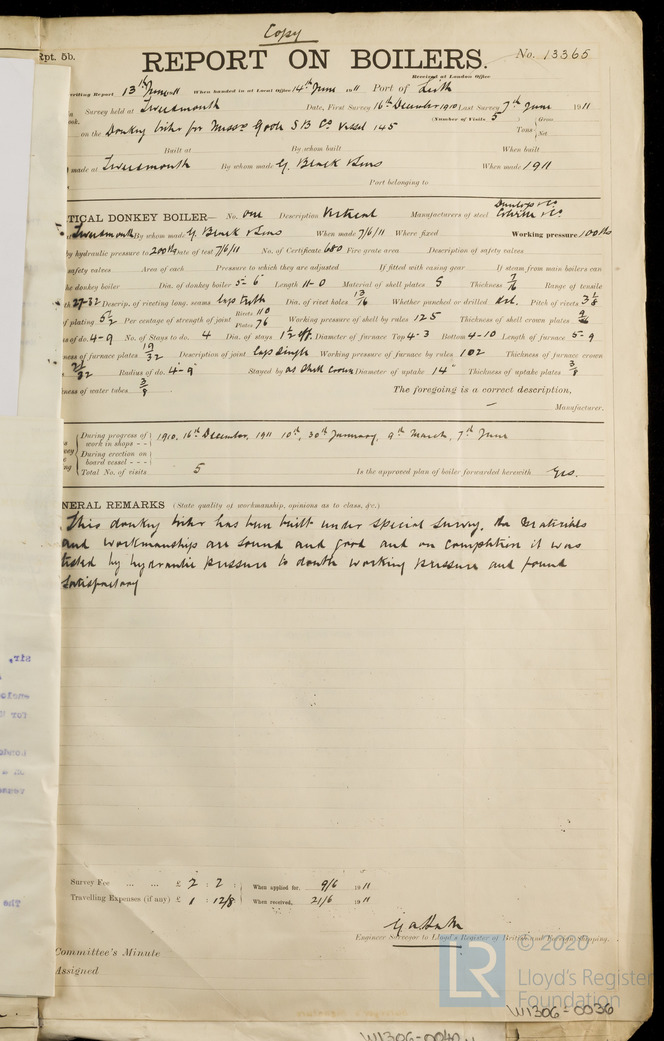 Copy
Rpt. 5b.
REPORT ON BOILERS.
No. 13365
Received at London Office
writing Report 13th June 1911 When handed in at Local Office 14th June 1911 Port of Leith
Survey held at Tweedmouth Date, First Survey 16th December 1910 Last Survey 7th June 1911
(Number of Visits 5)
on the Donkey boiler for Messrs Goole S/B Co Vessel 145 Tons Gross Net
Built at By whom built When built
made at Tweedmouth By whom made G. Black & Sons When made 1911
Port belonging to
TICAL DONKEY BOILER— No. one Description Vertical Manufacturers of steel Dunlop & Co Colville & Co
Tweedmouth By whom made G. Black & Sons When made 7/6/11 Where fixed Working pressure 100 lbs
by hydraulic pressure to 200 lbs Date of test 7/6/11 No. of Certificate 680 Fire grate area Description of safety valves
safety valves Area of each Pressure to which they are adjusted If fitted with easing gear If steam from main boilers can
the donkey boiler Dia. of donkey boiler 5-6 Length 11-0 Material of shell plates S Thickness 7/16 Range of tensile
th 27-32 Descrip. of riveting long. seams Lap treble Dia. of rivet holes 13/16 Whether punched or drilled drl. Pitch of rivets 3 1/8
of plating 5 1/2 Per centage of strength of joint Rivets 110 Plates 76 Working pressure of shell by rules 125 Thickness of shell crown plates 9/16
s of do. 4-9 No. of Stays to do. 4 Dia. of stays 1 1/2 eff. Diameter of furnace Top 4-3 Bottom 4-10 Length of furnace 5-9
ness of furnace plates 19/32 Description of joint Lap single Working pressure of furnace by rules 102 Thickness of furnace crown
21/32 Radius of do. 4-9 Stayed by as Shell Crown Diameter of uptake 14" Thickness of uptake plates 3/8
ness of water tubes 3/8
The foregoing is a correct description,
Manufacturer.
During progress of work in shops - - 1910. 16th December, 1911 10th, 30th January, 9th March, 7th June
During erection on board vessel - - -
Total No. of visits 5 Is the approved plan of boiler forwarded herewith Yes.
NERAL REMARKS (State quality of workmanship, opinions as to class, &c.)
This donkey boiler has been built under special survey, the materials
and workmanship are sound and good and on completion it was
tested by hydraulic pressure to double working pressure and found
satisfactory
Survey Fee ... ... £ 2 : 2 When applied for. 9/6 1911
Travelling Expenses (if any) £ 1 : 12/8 When received, 21/6 1911
Engineer Surveyor to Lloyd's Register of British and Foreign Shipping.
Committee's Minute
Assigned
LR © 2020
Lloyd's Register
Foundation
W1306-0036
W1306-0040